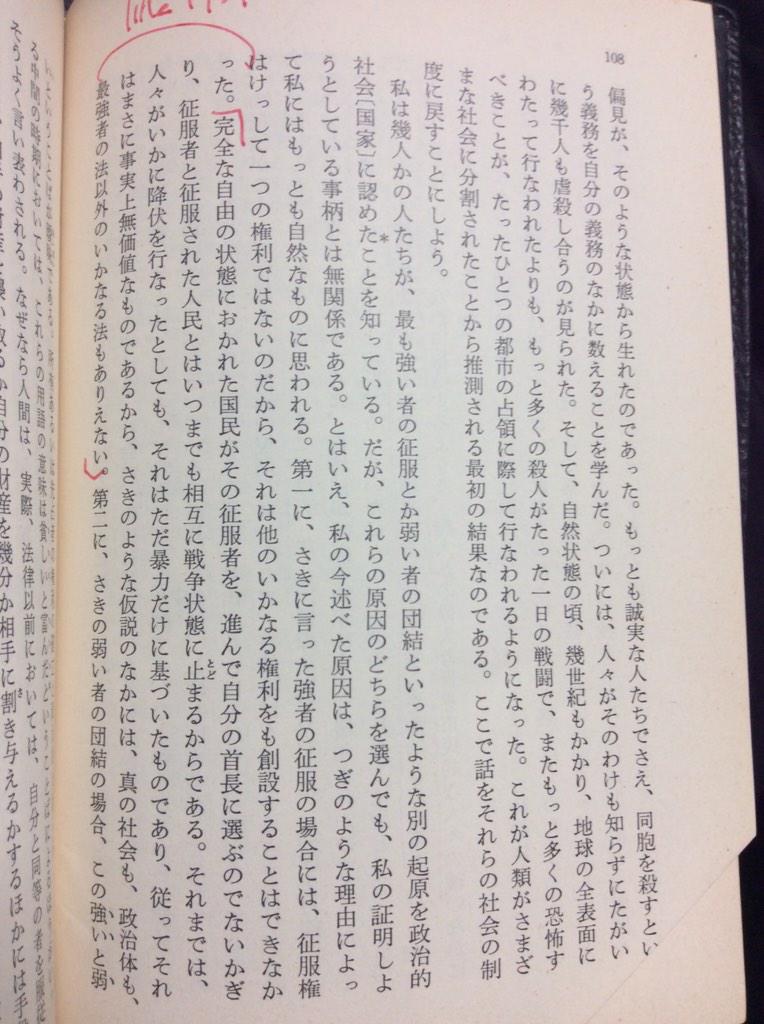 108
偏見が、そのような状態から生れたのであった。もっとも誠実な人たちでさえ、同胞を殺すとい
う義務を自分の義務のなかに数えることを学んだ。ついには、人々がそのわけも知らずにたがい
に幾千人も虐殺し合うのが見られた。そして、自然状態の頃、幾世紀もかかり、地球の全表面に
わたって行なわれたよりも、もっと多くの殺人がたった一日の戦闘で、またもっと多くの恐怖す
べきことが、たったひとつの都市の占領に際して行なわれるようになった。これが人類がさまざ
まな社会に分割されたことから推測される最初の結果なのである。ここで話をそれらの社会の制
度に戻すことにしよう。
私は幾人かの人たちが、最も強い者の征服とか弱い者の団結といったような別の起原を政治的
社会〔国家〕に認めた*ことを知っている。だが、これらの原因のどちらを選んでも、私の証明しよ
うとしている事柄とは無関係である。とはいえ、私の今述べた原因は、つぎのような理由によっ
て私にはもっとも自然なものに思われる。第一に、さきに言った強者の征服の場合には、征服権
はけっして一つの権利ではないのだから、それは他のいかなる権利をも創設することはできなか
った。完全な自由の状態におかれた国民がその征服者を、進んで自分の首長に選ぶのでないかぎ
り、征服者と征服された人民とはいつまでも相互に戦争状態に止とどまるからである。それまでは、
人々がいかに降伏を行なったとしても、それはただ暴力だけに基づいたものであり、従ってそれ
はまさに事実上無価値なものであるから、さきのような仮説のなかには、真の社会も、政治体も、
最強者の法以外のいかなる法もありえない。第二に、さきの弱い者の団結の場合、この強いと弱
る中間の時期においては、これらの用語の意味は貧しいと富んだということばによる
そうよく言い表わされる。なぜなら人間は、実際、法律以前においては、自分と同等の者を服従
自分の財産を幾分か相手に割さき与えるかするほかには手